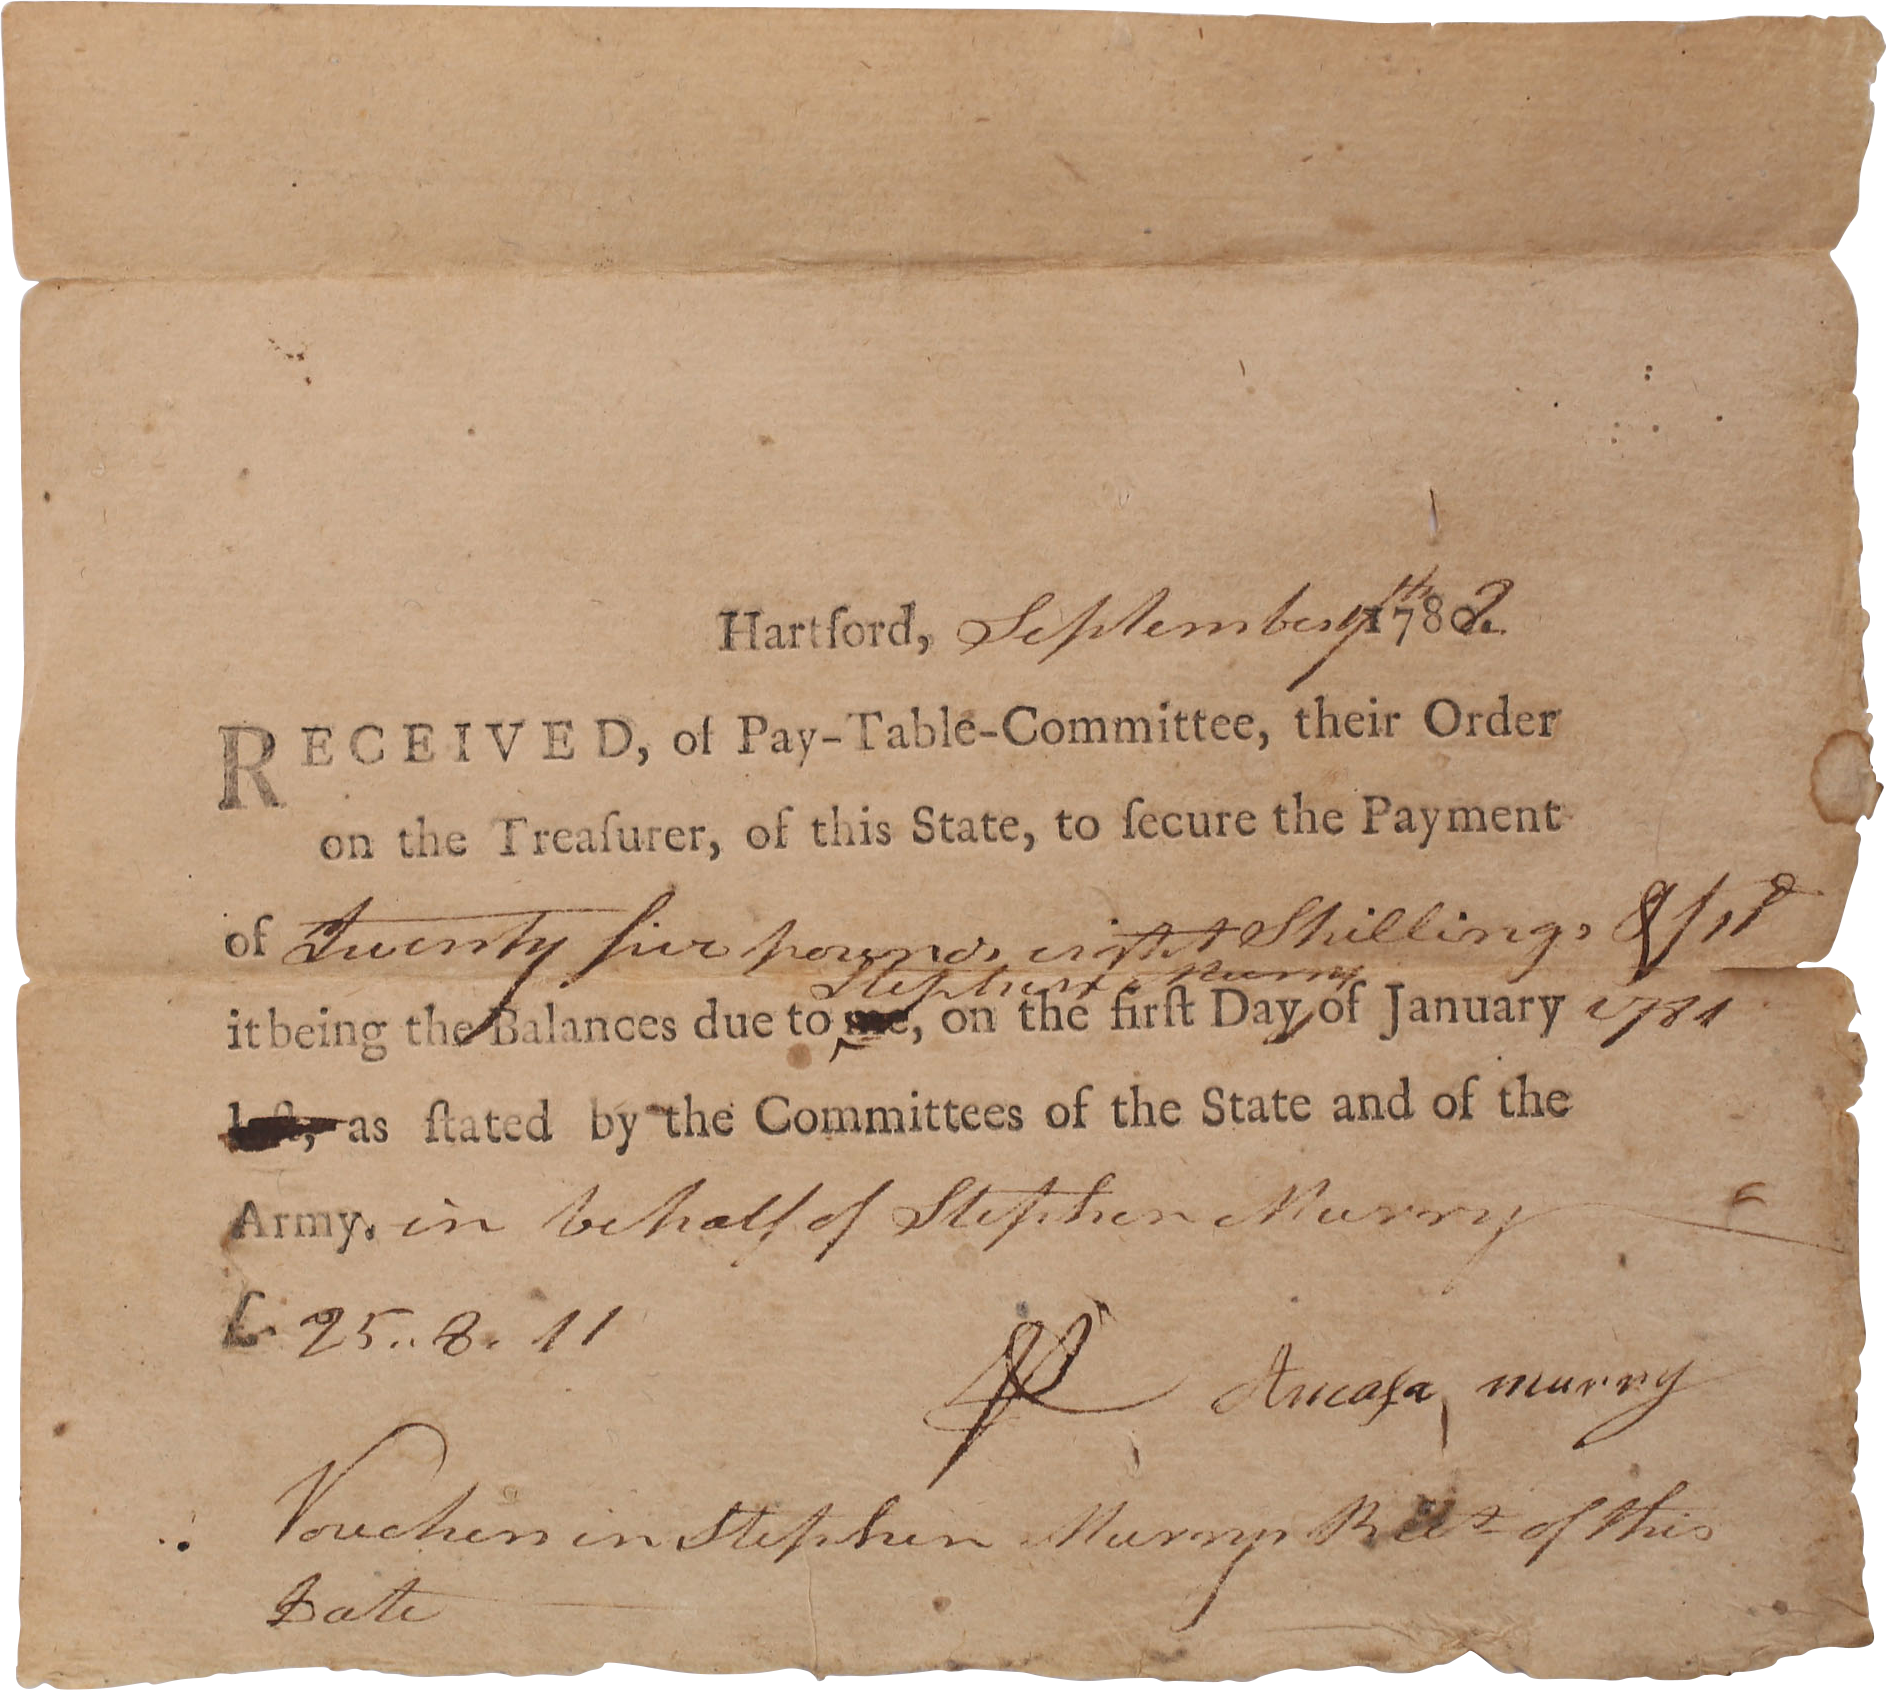 Hartford, September 9th 1782.
RECEIVED, of Pay-Table-Committee, their Order
on the Treaſurer, of this State, to ſecure the Payment
of Twenty five pounds eight Shillings & /11d
Stephen Murry
it being the Balances due to me, on the firſt Day of January 1781
laſt, as ſtated by the Committees of the State and of the
Army. in behalf of Stephen Murry
£. 25..8.11
Amaſa murry
Vouchers in Stephen Murrys Rect of this
Date